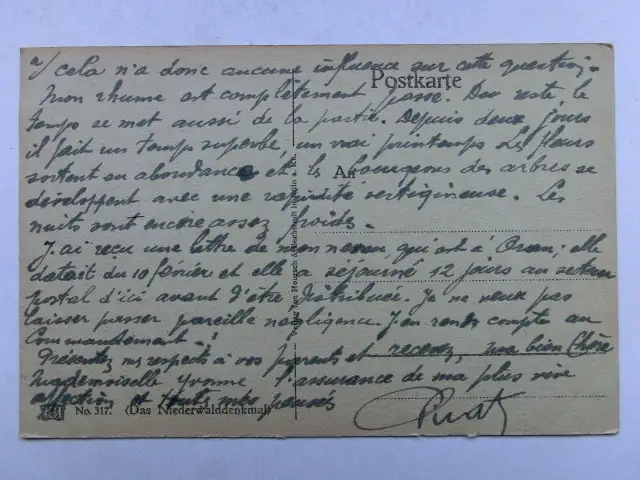 2/ cela n'a donc aucune influence sur cette question.
Postkarte
Mon rhume est complètement passé. Du reste, le
temps se met aussi de la partie. Depuis deux jours
il fait un temps superbe, un vrai printemps. Les fleurs
sortent en abondance et les bourgeons des arbres se
An
développent avec une rapidité vertigineuse. Les
nuits sont encore assez froides.
J'ai reçu une lettre de mon neveu, qui est à Oran; elle
datait du 10 février et elle a séjourné 12 jours au secteur
postal d'ici avant d'être distribuée. Je ne veux pas
laisser passer pareille négligence. J'en rends compte au
Commandement.
Présentez mes respects à vos parents et recevez, ma bien Chère
Mademoiselle Yvonne l'assurance de ma plus vive
affection et toutes mes pensées
No. 317. (Das Niederwalddenkmal)